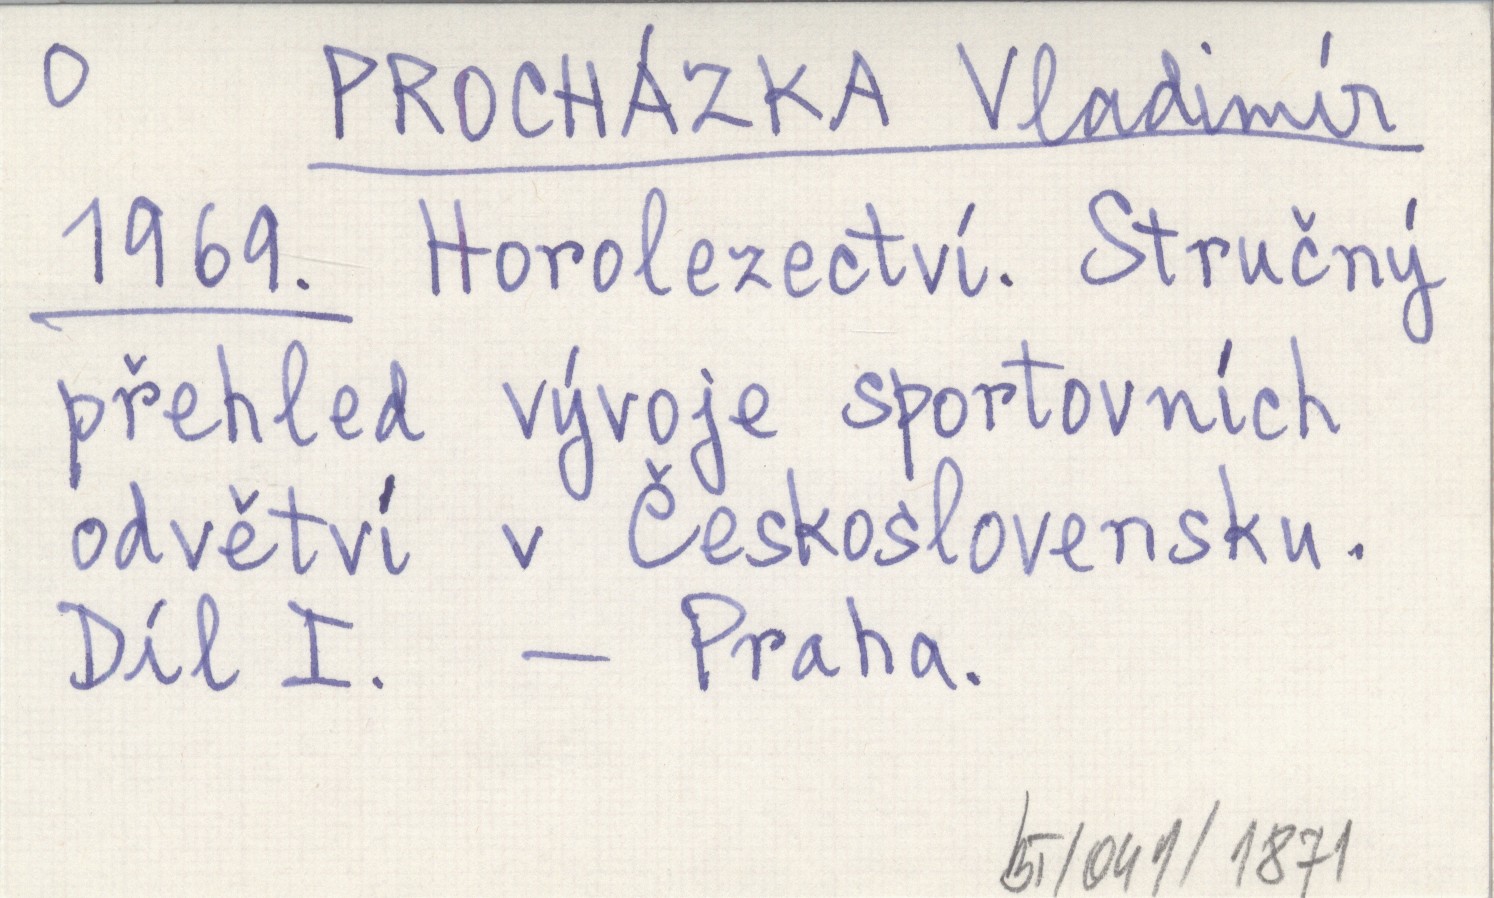 O PROCHÁZKA Vladimír
1969. Horolezectví. Stručný
přehled vývoje sportovních
odvětví v Československu.
Díl I. — Praha.
/041/1871